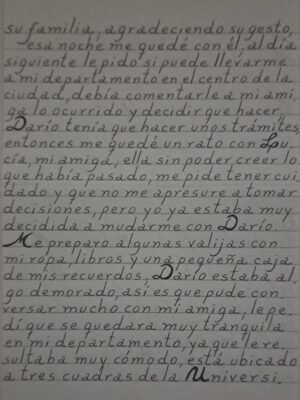 su familia, agradeciendo su gesto,
esa noche me quedé con él, al día
siguiente le pido si puede llevarme
a mi departamento en el centro de la
ciudad, debía comentarle a mi ami,
ga lo ocurrido y decidir que hacer,
Darío tenía que hacer unos trámites
entonces me quedé un rato con Lu_
cía, mi amiga, ella sin poder creer lo
que había pasado, me pide tener cui_
dado y que no me apresure a tomar
decisiones, pero yo ya estaba muy
decidida a mudarme con Darío.
Me preparo algunas valijas con
mi ropa, libros y una pequeña caja
de mis recuerdos, Darío estaba al_
go demorado, así es que pude con_
versar mucho con mi amiga, le pe_
dí que se quedara muy tranquila
en mi departamento, ya que le re_
sultaba muy cómodo, está ubicado
a tres cuadras de la Universi_